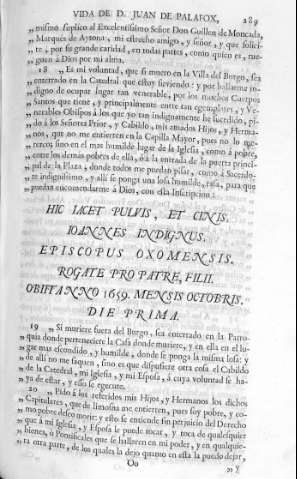 VIDA DE D. JUAN DE PALAFOX, 289
„ mismo suplico al Excelentissimo Señor Don Guillen de Moncada,
„ Marqués de Aytona, mi estrecho amigo, y señor, y que solicit
„ te, por su grande caridad, en todas partes, como quien es, rue-
„ guen à Dios por mi alma.
18 „ Es mi voluntad, que si muero en la Villa del Burgo, sea
„ enterrado en la Catedral que estoy sirviendo: y por hallarme in-
„ digno de ocupar lugar tan venerado, por los muchos Cuerpos
„ Santos que tiene, y principalmente entre tan exemplares, y Ve-
„ nerables Obispos à los que yo tan indignamente he sucedido, pi-
„ do à los Señores Prior, y Cabildo, mis amados Hijos, y Herma-
„ nos, que no me entierren en la Capilla Mayor, pues no lo me-
„ rezco; sino en el mas humilde lugar de la Iglesia, como à pobre,
„ entre los demás pobres de ella, ò à la entrada de la puerta princi-
„ pal de la Plaza, donde todos me puedan pisar, como à Sacerdo-
„ te indignissimo, y allí se ponga una losa humilde, rasa, para que
„ puedan encomendarme à Dios, con esta Inscripcion:
HIC IACET PULVIS, ET CINIS,
IOANNES INDIGNUS,
EPISCOPUS OXOMENSIS.
ROGATE PRO PATRE, FILII.
OBIIT ANNO 1659. MENSIS OCTOBRIS,
DIE PRIMA.
19 „ Si muriere fuera del Burgo, sea enterrado en la Parro-
„ quia donde perteneciere la Casa donde muriere, y en ella en lu-
„ gar mas escondido, y humilde, donde se ponga la misma losa: y
„ de allí no me saquen, sino es que dispusiere otra cosa el Cabildo
„ de la Catedral, mi Iglesia, y mi Esposa, à cuya voluntad se ha-
„ ya de estar, y esso se egecute.
20 „ Pido à los referidos mis Hijos, y Hermanos los dichos
„ Capitulares, que de limosna me entierren, pues soy pobre, y co-
„ mo pobre deseo morir: y esto se entiende sin perjuicio del Derecho
„ que à mi Iglesia, y Esposa le puede tocar, y toca de qualesquier
„ bienes, ò Pontificales que se hallaren en mi poder, y en qualquie-
„ ra otra parte, de los quales la dejo quanto en esta la puedo dejar,
Oo „ y